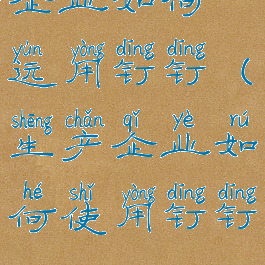 企业如何
yuǎn yòng dīng dīng
远用钉钉(
shēng chǎn qǐ yè rú
生产企业如
hé shǐ yòng dīng dīng
何使用钉钉